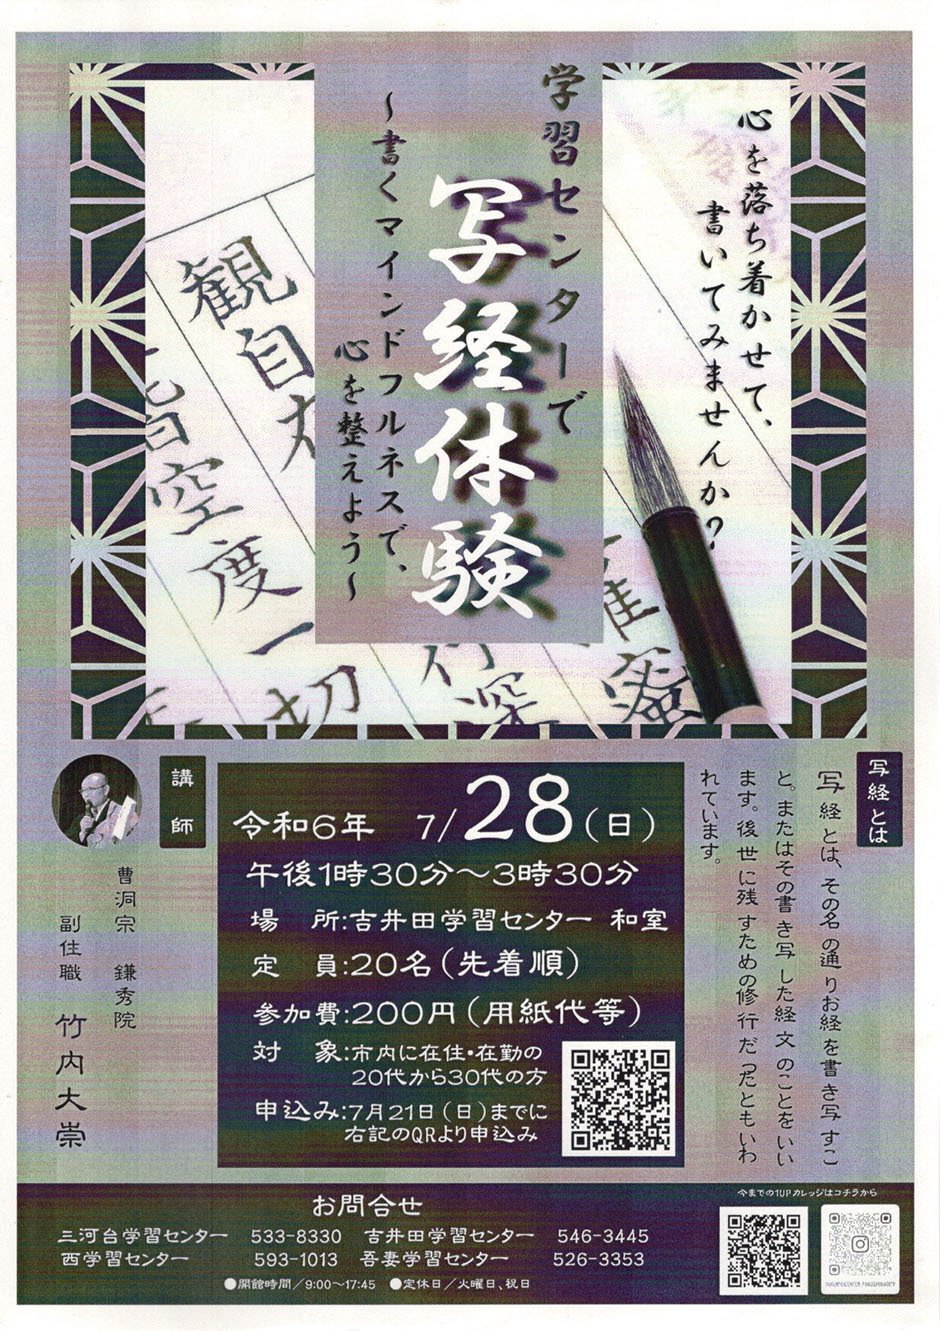 心を落ち着かせて、
書いてみませんか？
学習センターで
写経体験
～書くマインドフルネスで、
心を整えよう～
観自在
皆空度一切
写経とは
写経とは、その名の通りお経を書き写すこ
と。またはその書き写した経文のことをいい
ます。後世に残すための修行だったともいわ
れています。
令和6年 7/28(日)
午後1時30分～3時30分
場 所:吉井田学習センター 和室
定 員:20名(先着順)
参加費:200円(用紙代等)
対 象:市内に在住・在勤の
20代から30代の方
申込み:7月21日(日)までに
右記のQRより申込み
講師
曹洞宗 鎌秀院
副住職 竹内大崇
お問合せ
三河台学習センター 533-8330 吉井田学習センター 546-3445
西学習センター 593-1013 吾妻学習センター 526-3353
●開館時間／9:00～17:45 ●定休日／火曜日、祝日
今までの1UPカレッジはコチラから